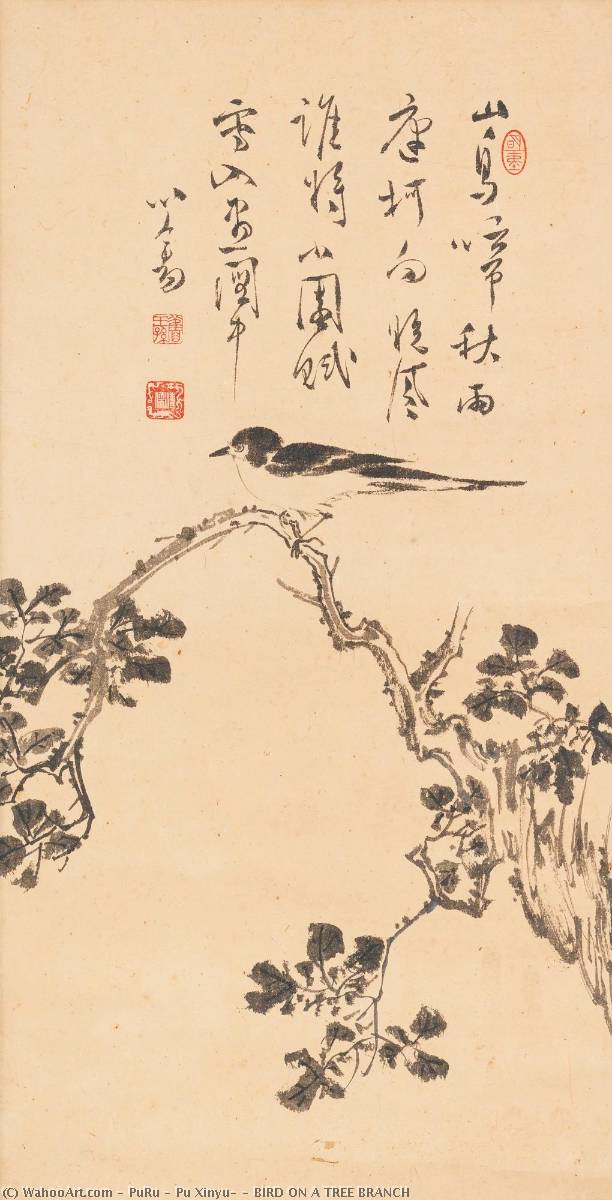 山鳥啼秋雨
庭柯向晚風
誰將小園賦
寫入畫圖中
心畬
舊王孫
(C) WahooArt.com - PuRu - Pu Xinyu- - BIRD ON A TREE BRANCH